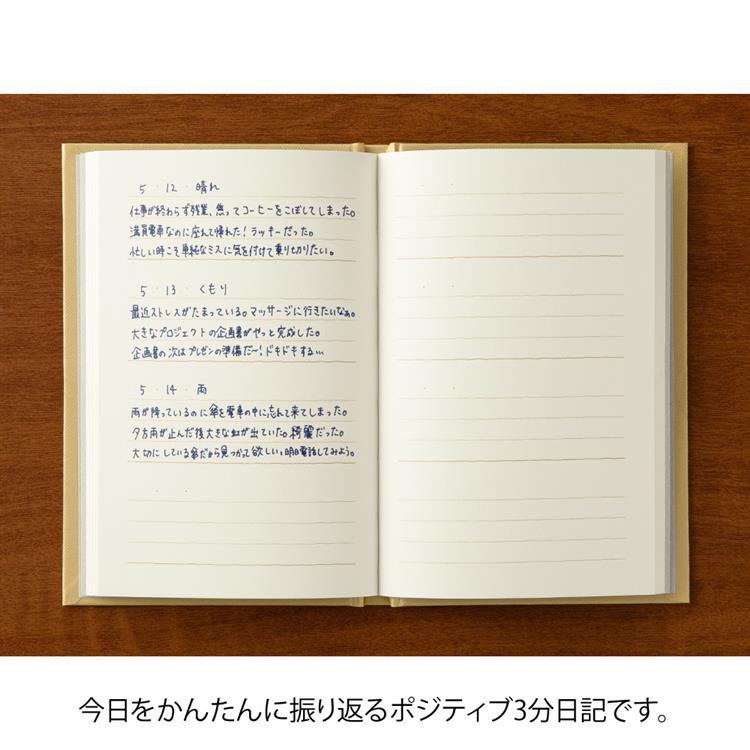 5・12・晴れ
仕事が終わらず残業、焦ってコーヒーをこぼしてしまった。
満員電車なのに座れて帰れた!ラッキーだった。
忙しい時こそ単純なミスに気を付けて乗り切りたい。
5・13・くもり
最近ストレスがたまっている。マッサージに行きたいなぁ。
大きなプロジェクトの企画書がやっと完成した。
企画書の次はプレゼンの準備だ〜!ドキドキする…
5・14・雨
雨が降っているのに傘を電車の中に忘れて来てしまった。
夕方雨が止んだ後大きな虹が出ていた。綺麗だった。
大切にしている傘だから見つかって欲しい、明日電話してみよう。
今日をかんたんに振り返るポジティブ3分日記です。